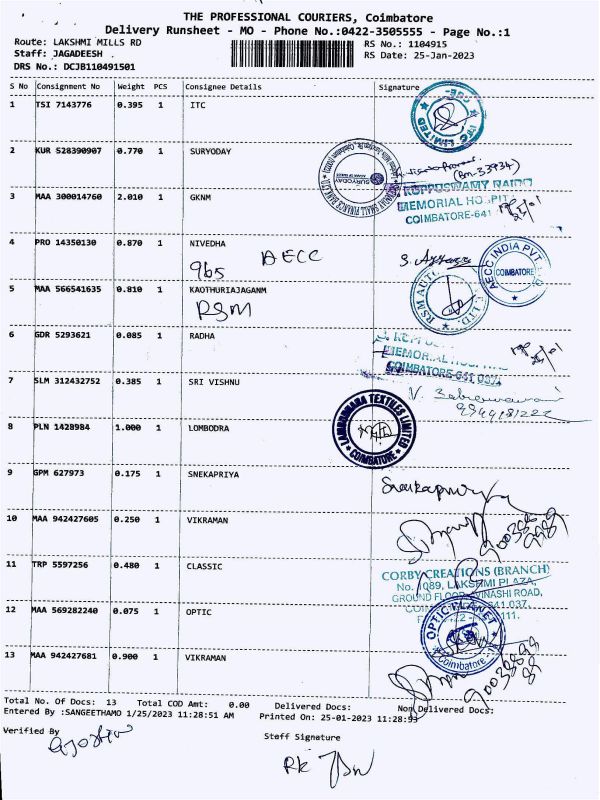 THE PROFESSIONAL COURIERS, Coimbatore
Delivery Runsheet - MO - Phone No.:0422-3505555 - Page No.:1
Route: LAKSHMI MILLS RD
RS No.: 1104915
Staff: JAGADEESH
RS Date: 25-Jan-2023
DRS No.: DCJB110491501
S No Consignment No Weight PCS Consignee Details Signature
1 TSI 7143776 0.395 1 ITC
ITC LIMITED
2 KUR 528390907 0.770 1 SURYODAY
SURYODAY
3 MAA 300014760 2.010 1 GKNM
KUPPUSWAMY NAIDU
MEMORIAL HOSPIT
COIMBATORE-641
4 PRO 14350130 0.870 1 NIVEDHA
965 AECC
AECC INDIA PVT
COIMBATORE
5 MAA 566541635 0.810 1 KAOTHURIAJAGANM
RSM
RSM AUTO LTD
6 GDR 5293621 0.085 1 RADHA
MEMORIAL HOSPI
COIMBATORE-641 037
7 SLM 312432752 0.385 1 SRI VISHNU
8 PLN 1428984 1.000 1 LOMBODRA
LAMBODHARA TEXTILES LIMITED
COIMBATORE
9 GPM 627973 0.175 1 SNEKAPRIYA
Snekapriya
10 MAA 942427605 0.250 1 VIKRAMAN
11 TRP 5597256 0.480 1 CLASSIC
CORBY CREATIONS (BRANCH)
No. 1089, LAKSHMI PLAZA,
GROUND FLOOR, AVINASHI ROAD,
641 037.
12 MAA 569282240 0.075 1 OPTIC
OPTIC PLANET
Coimbatore
13 MAA 942427681 0.900 1 VIKRAMAN
Total No. Of Docs: 13 Total COD Amt: 0.00 Delivered Docs: Non Delivered Docs:
Entered By :SANGEETHAMO 1/25/2023 11:28:51 AM Printed On: 25-01-2023 11:28:53
Verified By
Staff Signature